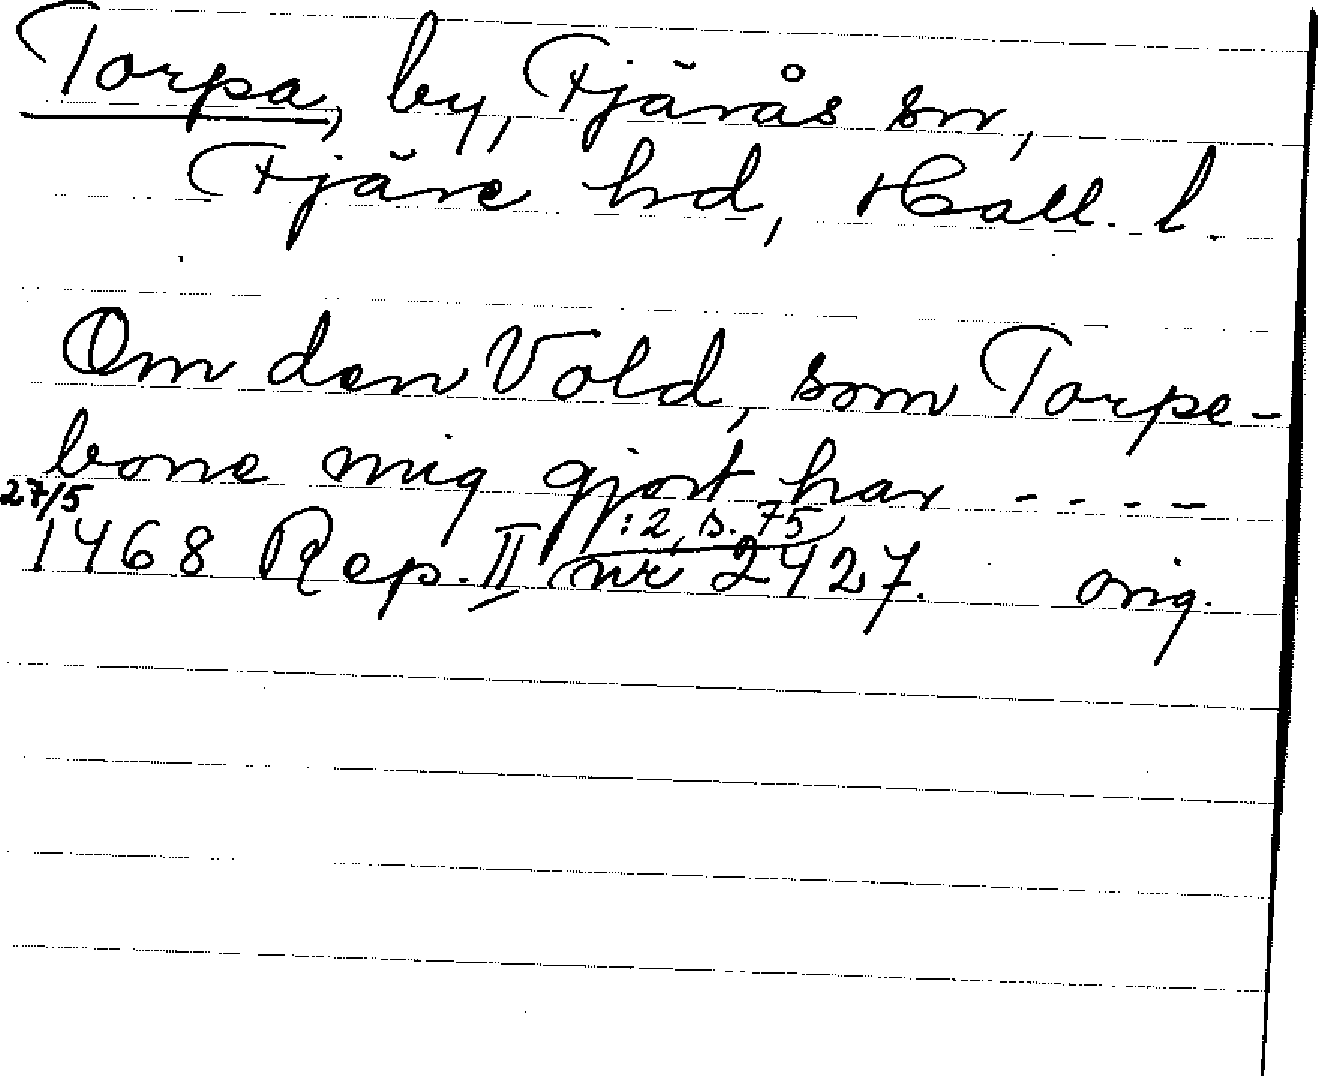 Torpa, by, Fjärås sn,
Fjäre hd, Hall. l.
Om den Vold, som Torpe-
bone mig gjort har - - - -
27/5
1468 Rep. II :2, s. 75 nr 2427. orig.